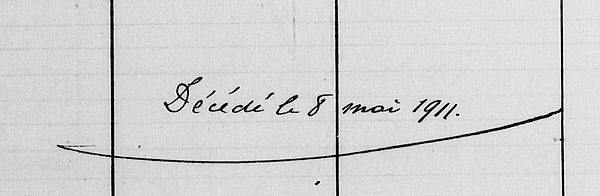 Décédé le 8 mai 1911.